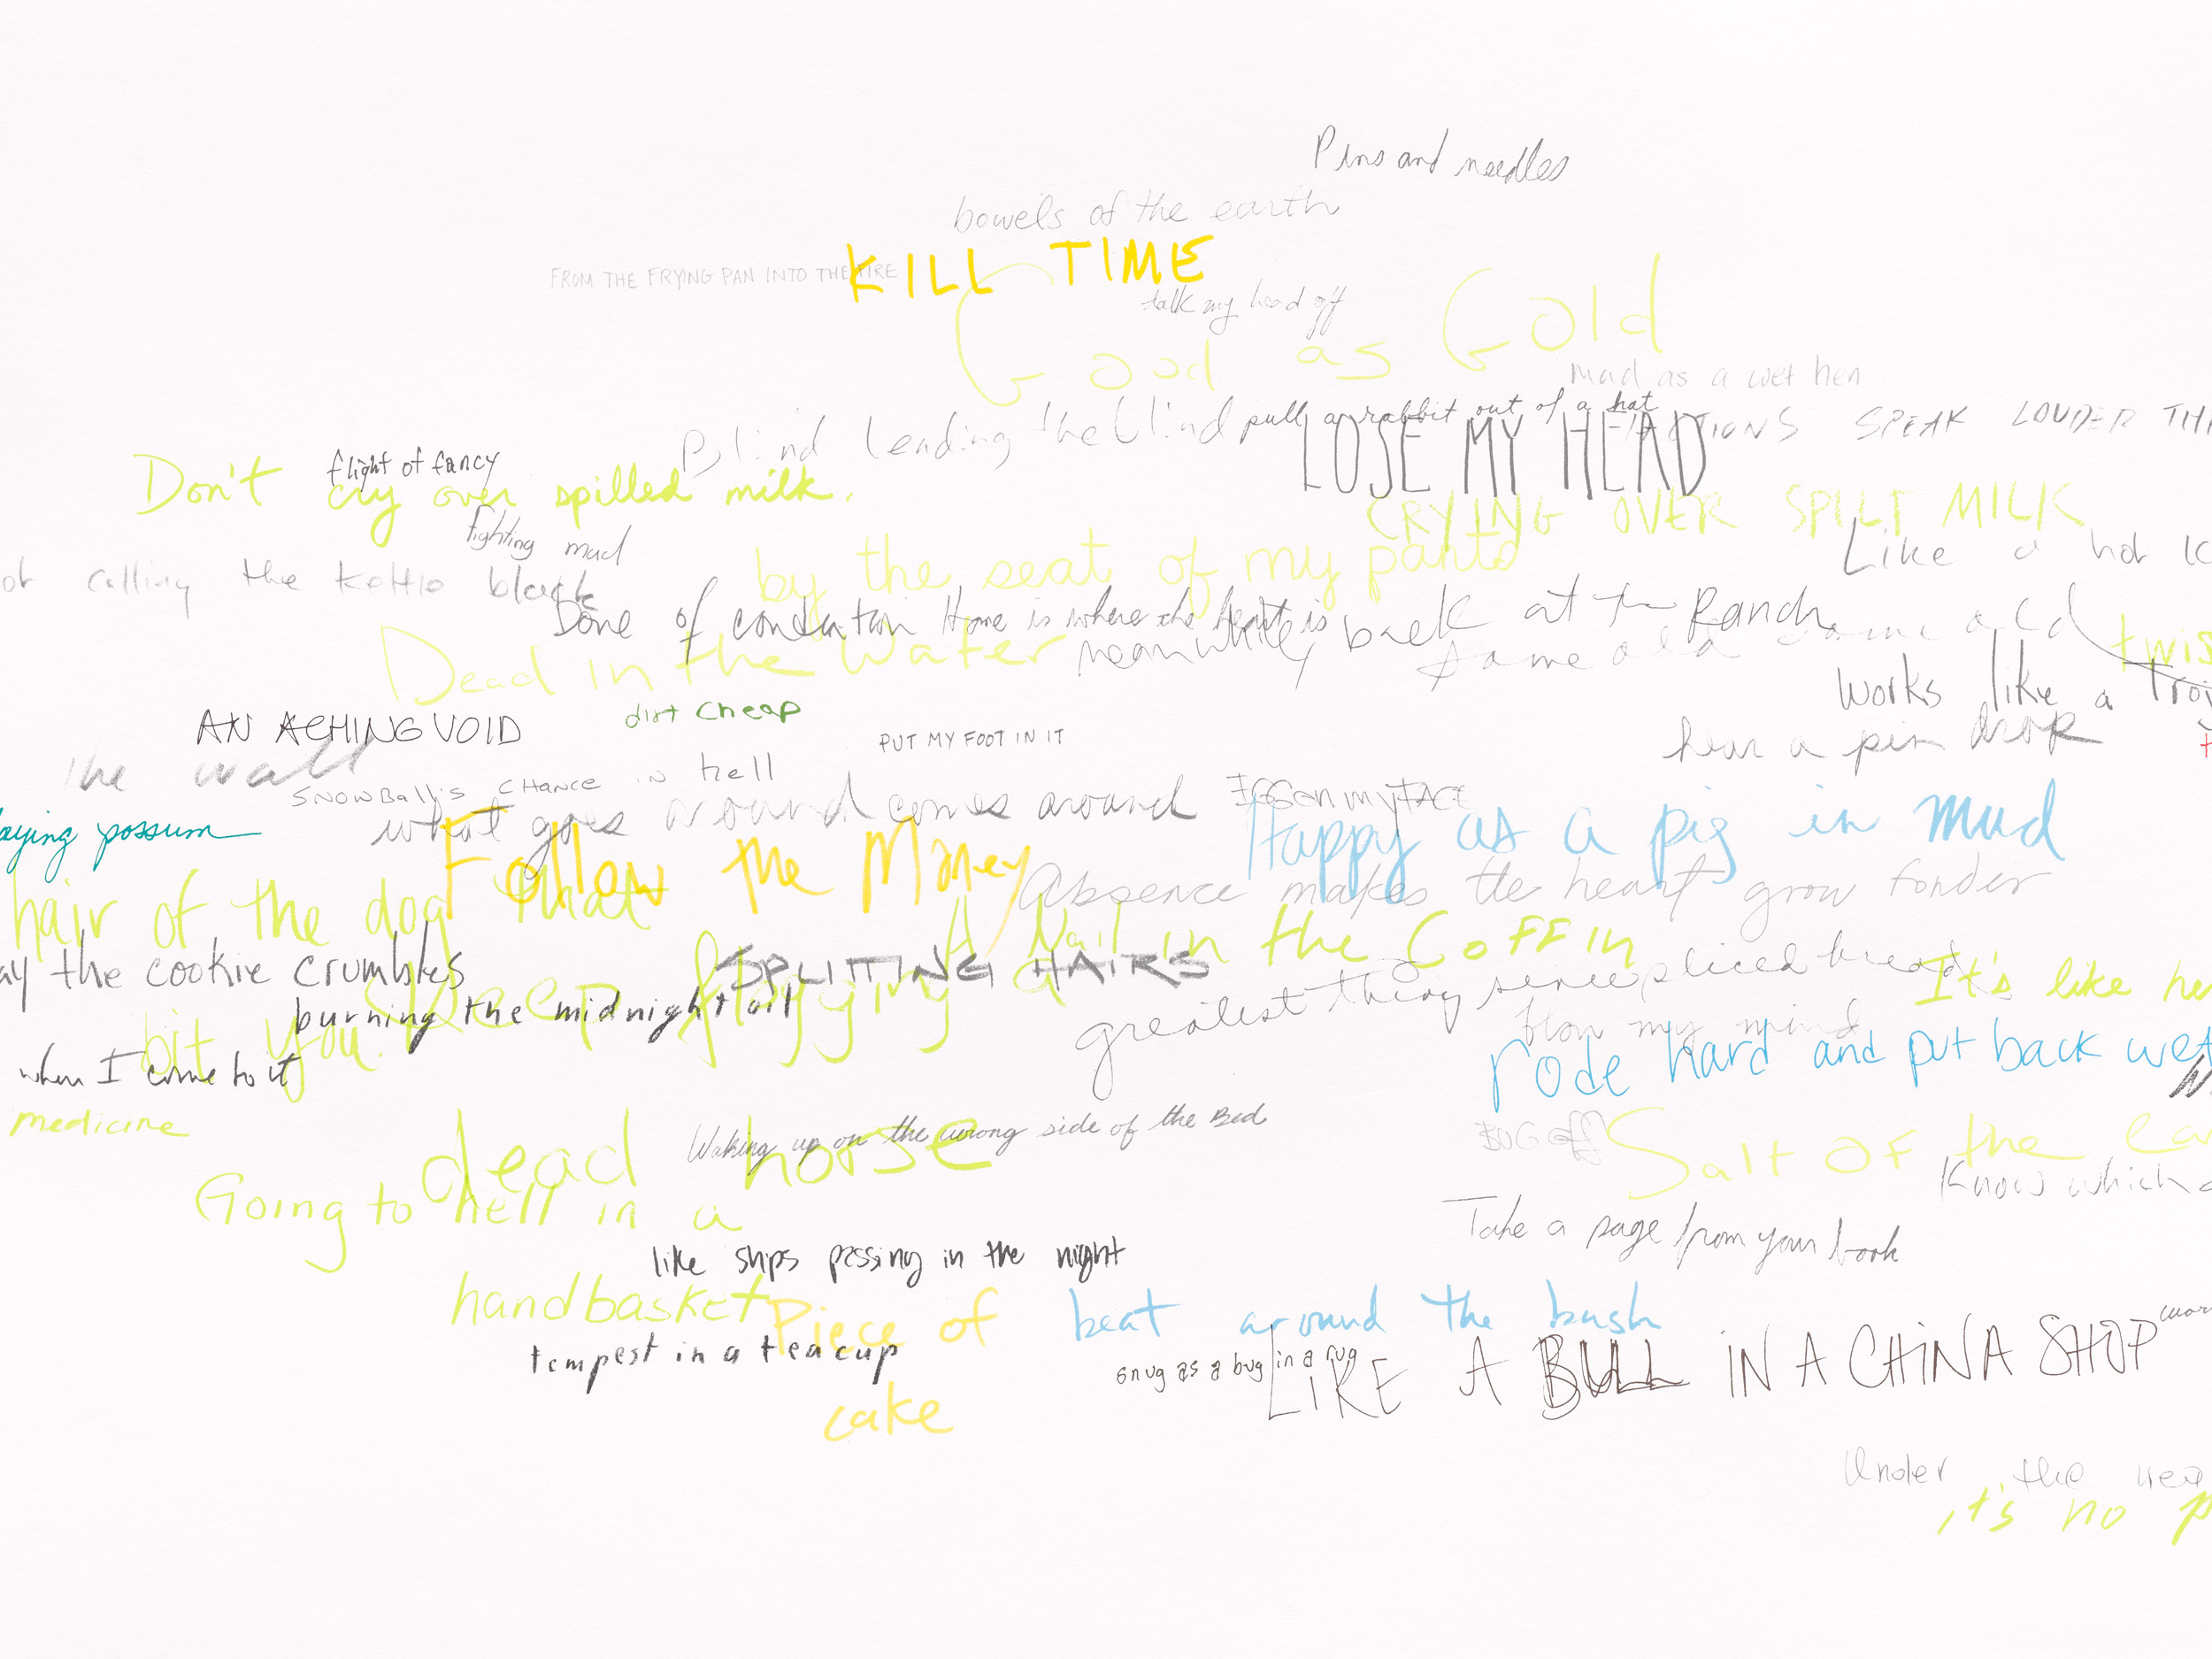 Pins and needles
bowels of the earth
KILL TIME
FROM THE FRYING PAN INTO THE FIRE
talk my head off
Good as Gold
mad as a wet hen
pull a rabbit out of a hat
ACTIONS SPEAK LOUDER
Blind leading the blind
LOSE MY HEAD
flight of fancy
Don't cry over spilled milk.
CRYING OVER SPILT MILK
fighting mad
Like a hot
calling the kettle black
by the seat of my pants
Done of
Home is where the heart is
meanwhile, back at the Ranch
same old same old
Dead in the water
works like a
dirt cheap
AN ACHING VOID
PUT MY FOOT IN IT
hear a pin drop
the wall
SNOWBALL'S CHANCE IN hell
what goes around comes around
EGG ON MY FACE
Happy as a pig in mud
possum
Follow the Money
Absence makes the heart grow fonder
hair of the dog that
bit you.
A Nail in the Coffin
the cookie crumbles
SPLITTING HAIRS
greatest thing since sliced bread
It's like
burning the midnight oil
Keep flogging a
dead horse
blow my mind
rode hard and put back wet
when I come to it
medicine
Waking up on the wrong side of the Bed
BUG off
Salt of the
Know which
Going to hell in a
handbasket
Take a page from your book
like ships passing in the night
Piece of
cake
beat around the bush
tempest in a teacup
snug as a bug in a rug
LIKE A BULL IN A CHINA SHOP
Under the
it's no